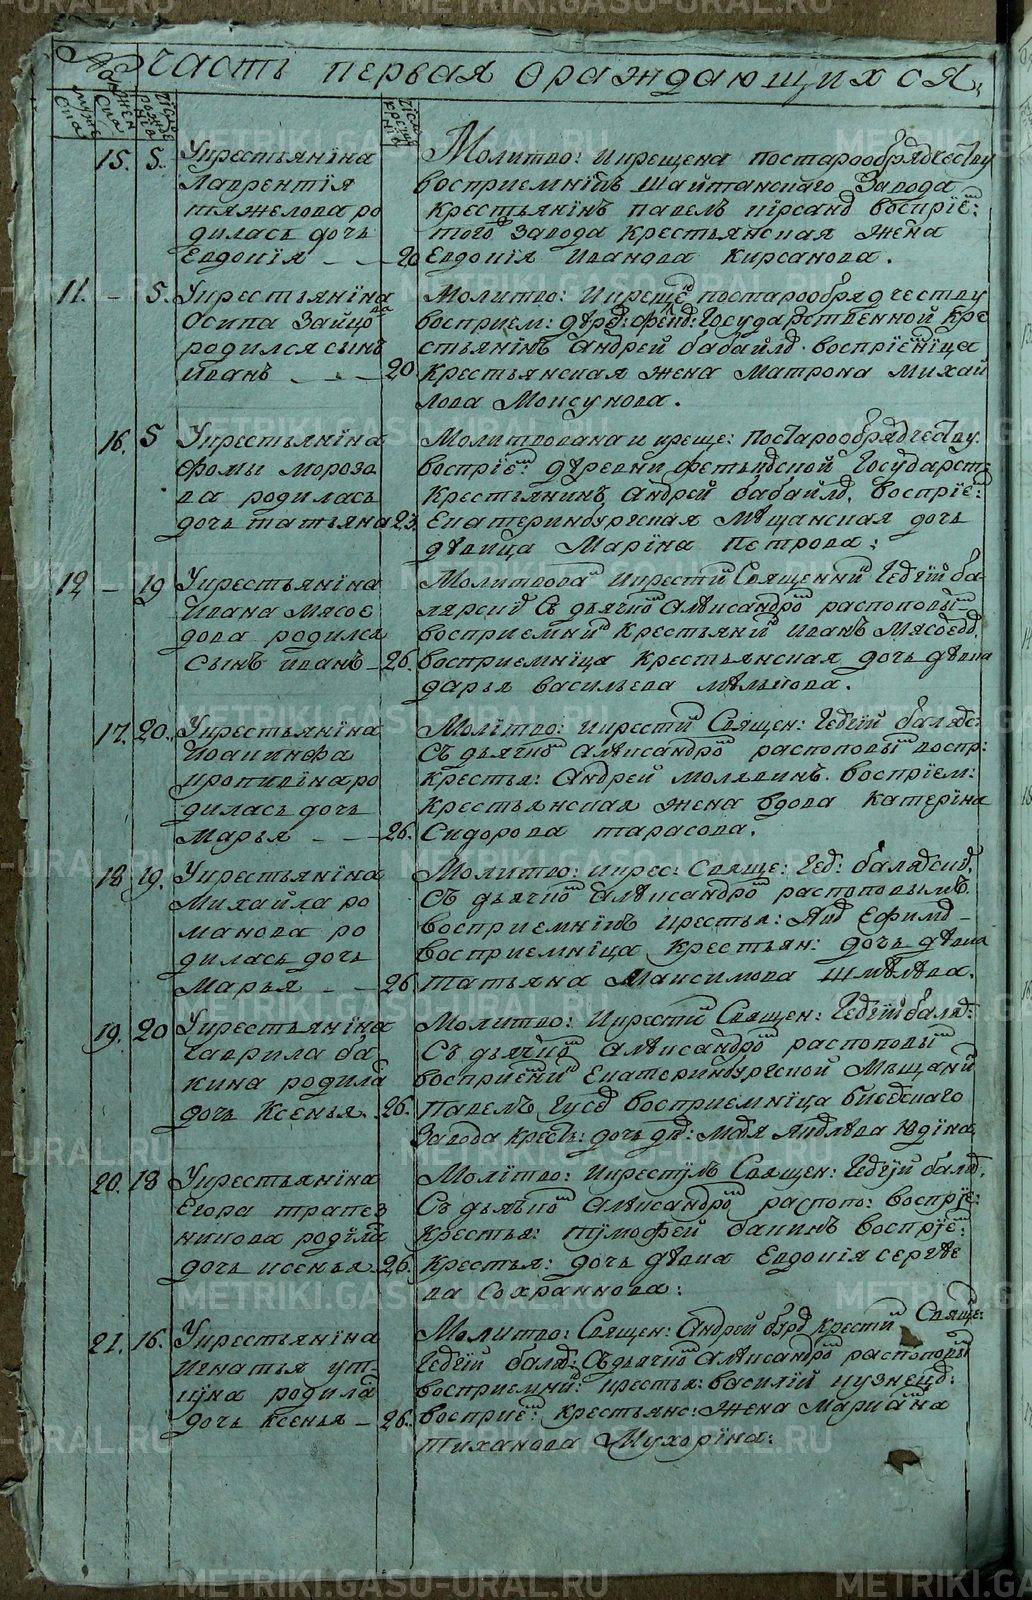 часть первая о раждающихся
15. 5. У крестьянина
Лаврентія
тяжелова ро
дилась дочь
Евдокія 20
Молитво: и крещена постарообрядчеству
восприемникъ шайтанскаго завода
крестьянинъ павелъ кирсано воспріе:
того завода крестьянская жена
Евдокія Иванова Кирсанова.
11. – 5. У крестьянина
Осипа Зайцова
родился сынъ
иванъ 20
Молитво: и креще постарообрядчеству
восприем: государственной кре
стьянинъ Андрей бабайло. воспріемница
крестьянская жена Матрона Михай
лова Моисунова.
16. 5 У крестьянина
фомы морозо
ва родилась
дочь татьяна 23.
Молитвована и креще: постарообрядчеству.
воспріе: деревни государств
крестьянинъ Андрей бабайло. воспріе:
Екатеринбургская мещанская дочь
девица Марина Петрова:
12 – 19 У крестьянина
Ивана мясое
дова родился
сынъ иванъ 26.
Молитвова и крести Священни Гедгій ба-
лярси съ дьячко Александро распоповы
восприемни крестьяни иванъ Мясоедо
восприемница крестьянская дочь девка
дарья васильева мелькова.
17. 20. У крестьянина
Иоакинфа
кропивина ро
дилась дочь
Марья 26.
Молитво: и крести Священ: Гедгій баляс
съ дьячко Александро распоповы воспр:
крестья: Андрей Молявинъ. восприем:
крестьянская жена вдова Катерина
Сидорова тарасова.
18 19. У крестьянина
Михайла ро
манова ро
дилась дочь
Марья 26
Молитво: и крес: Свяще: Гед: балярси,
съ дьячко Александро распоповымъ
восприемникъ крестья: Яко Ефимо
восприемница крестьян: дочь девка
татьяна Максимова шмелева.
19. 20 У крестьянина
Гаврила ба
кина родила
дочь Ксенья 26.
Молитво: и крести Священ: Гедгій баля:
съ дьячко Александро распоповы
восприемни Екатеринбургской мещани
Павелъ Гусе восприемница
завода кресть: дочь де: Юдина
20. 18 У крестьянина
Егора трапез
никова родила
дочь ксенья 26.
Молитво: и крестилъ Священ: Гедгій баля.
съ дьячко Александро распопо: воспріе:
крестья: тимофей банинъ воспріе:
крестья: дочь девка Евдокія сергее
ва Сохраннова:
21. 16. У крестьянина
игнатья ут-
кина родила
дочь ксенья 26.
Молитво: Священ: Андрей крести Свяще:
Гедгій баля: съ дьячко Александро распопо
восприемни: крестья: василій кузнецо:
воспріе: крестьянс: жена Мариана
тиханова Мухорина:
METRIKI.GASO-URAL.RU